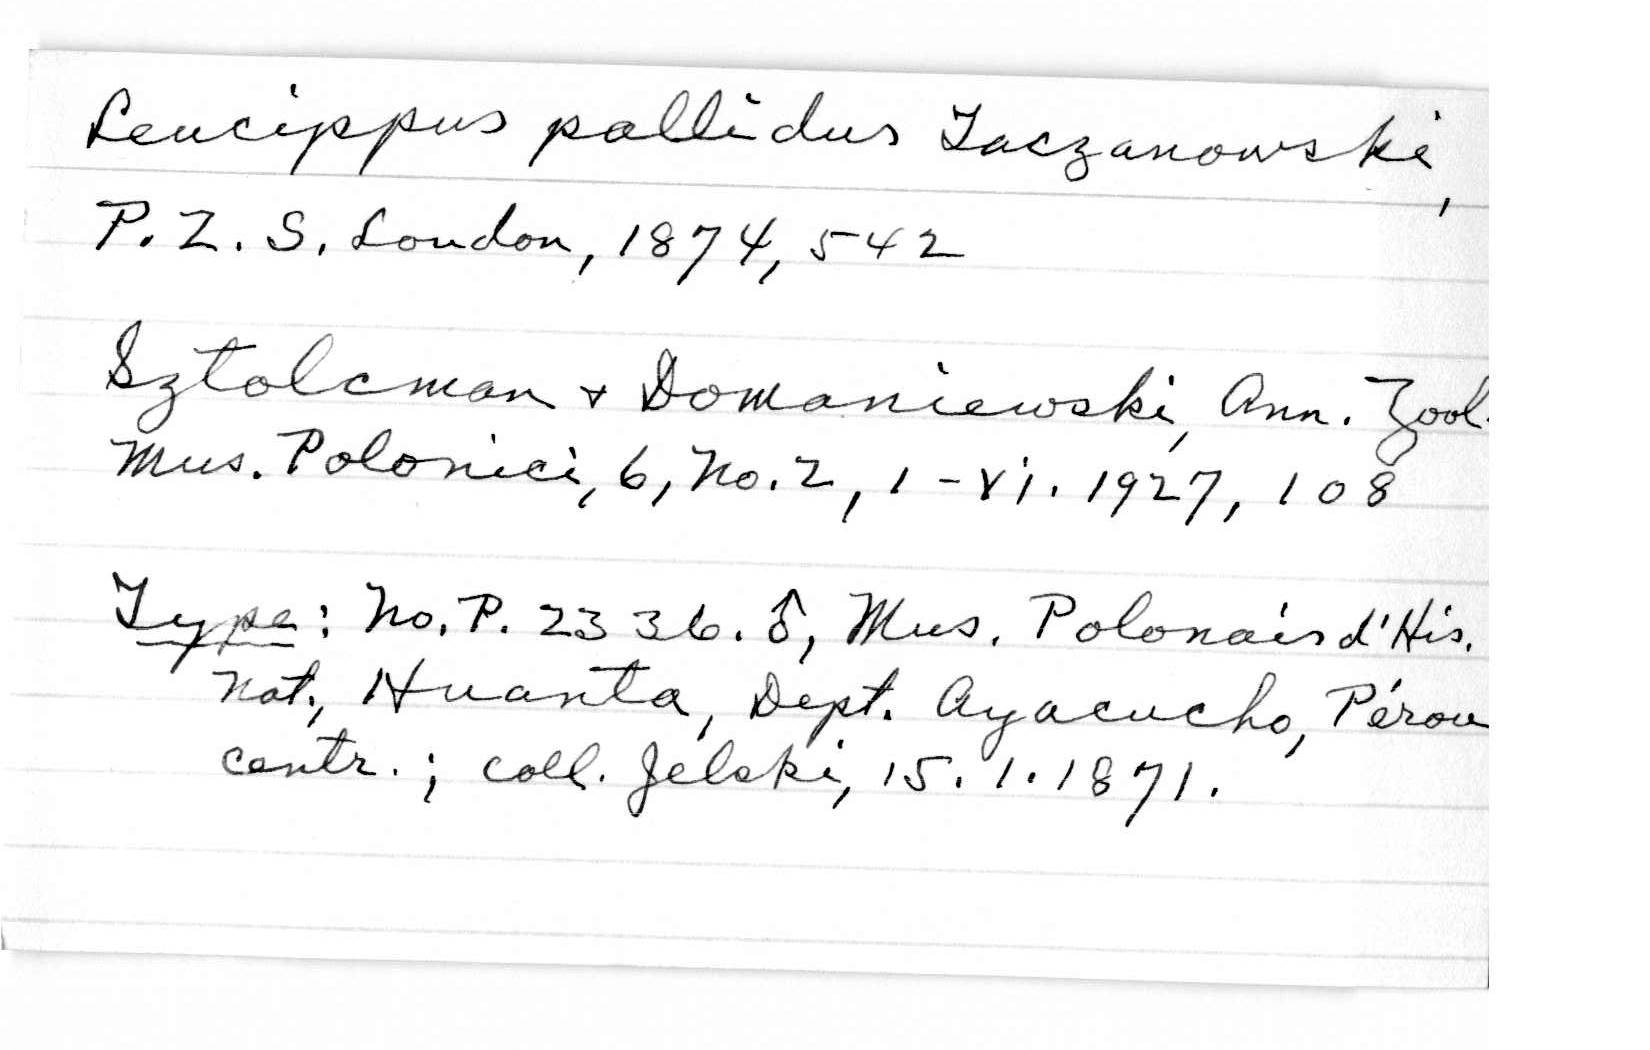 Leucippus pallidus Taczanowski,
P. Z. S. London, 1874, 542
Sztolcman + Domaniewski, Ann. Zool.
Mus. Polonici, 6, No. 2, 1-vi. 1927, 108
Type: No. P. 2336. ♂, Mus. Polonais d'His.
Nat., Huanta, Dept. Ayacucho, Pérou
centr.; coll. Jelski, 15. 1. 1871.